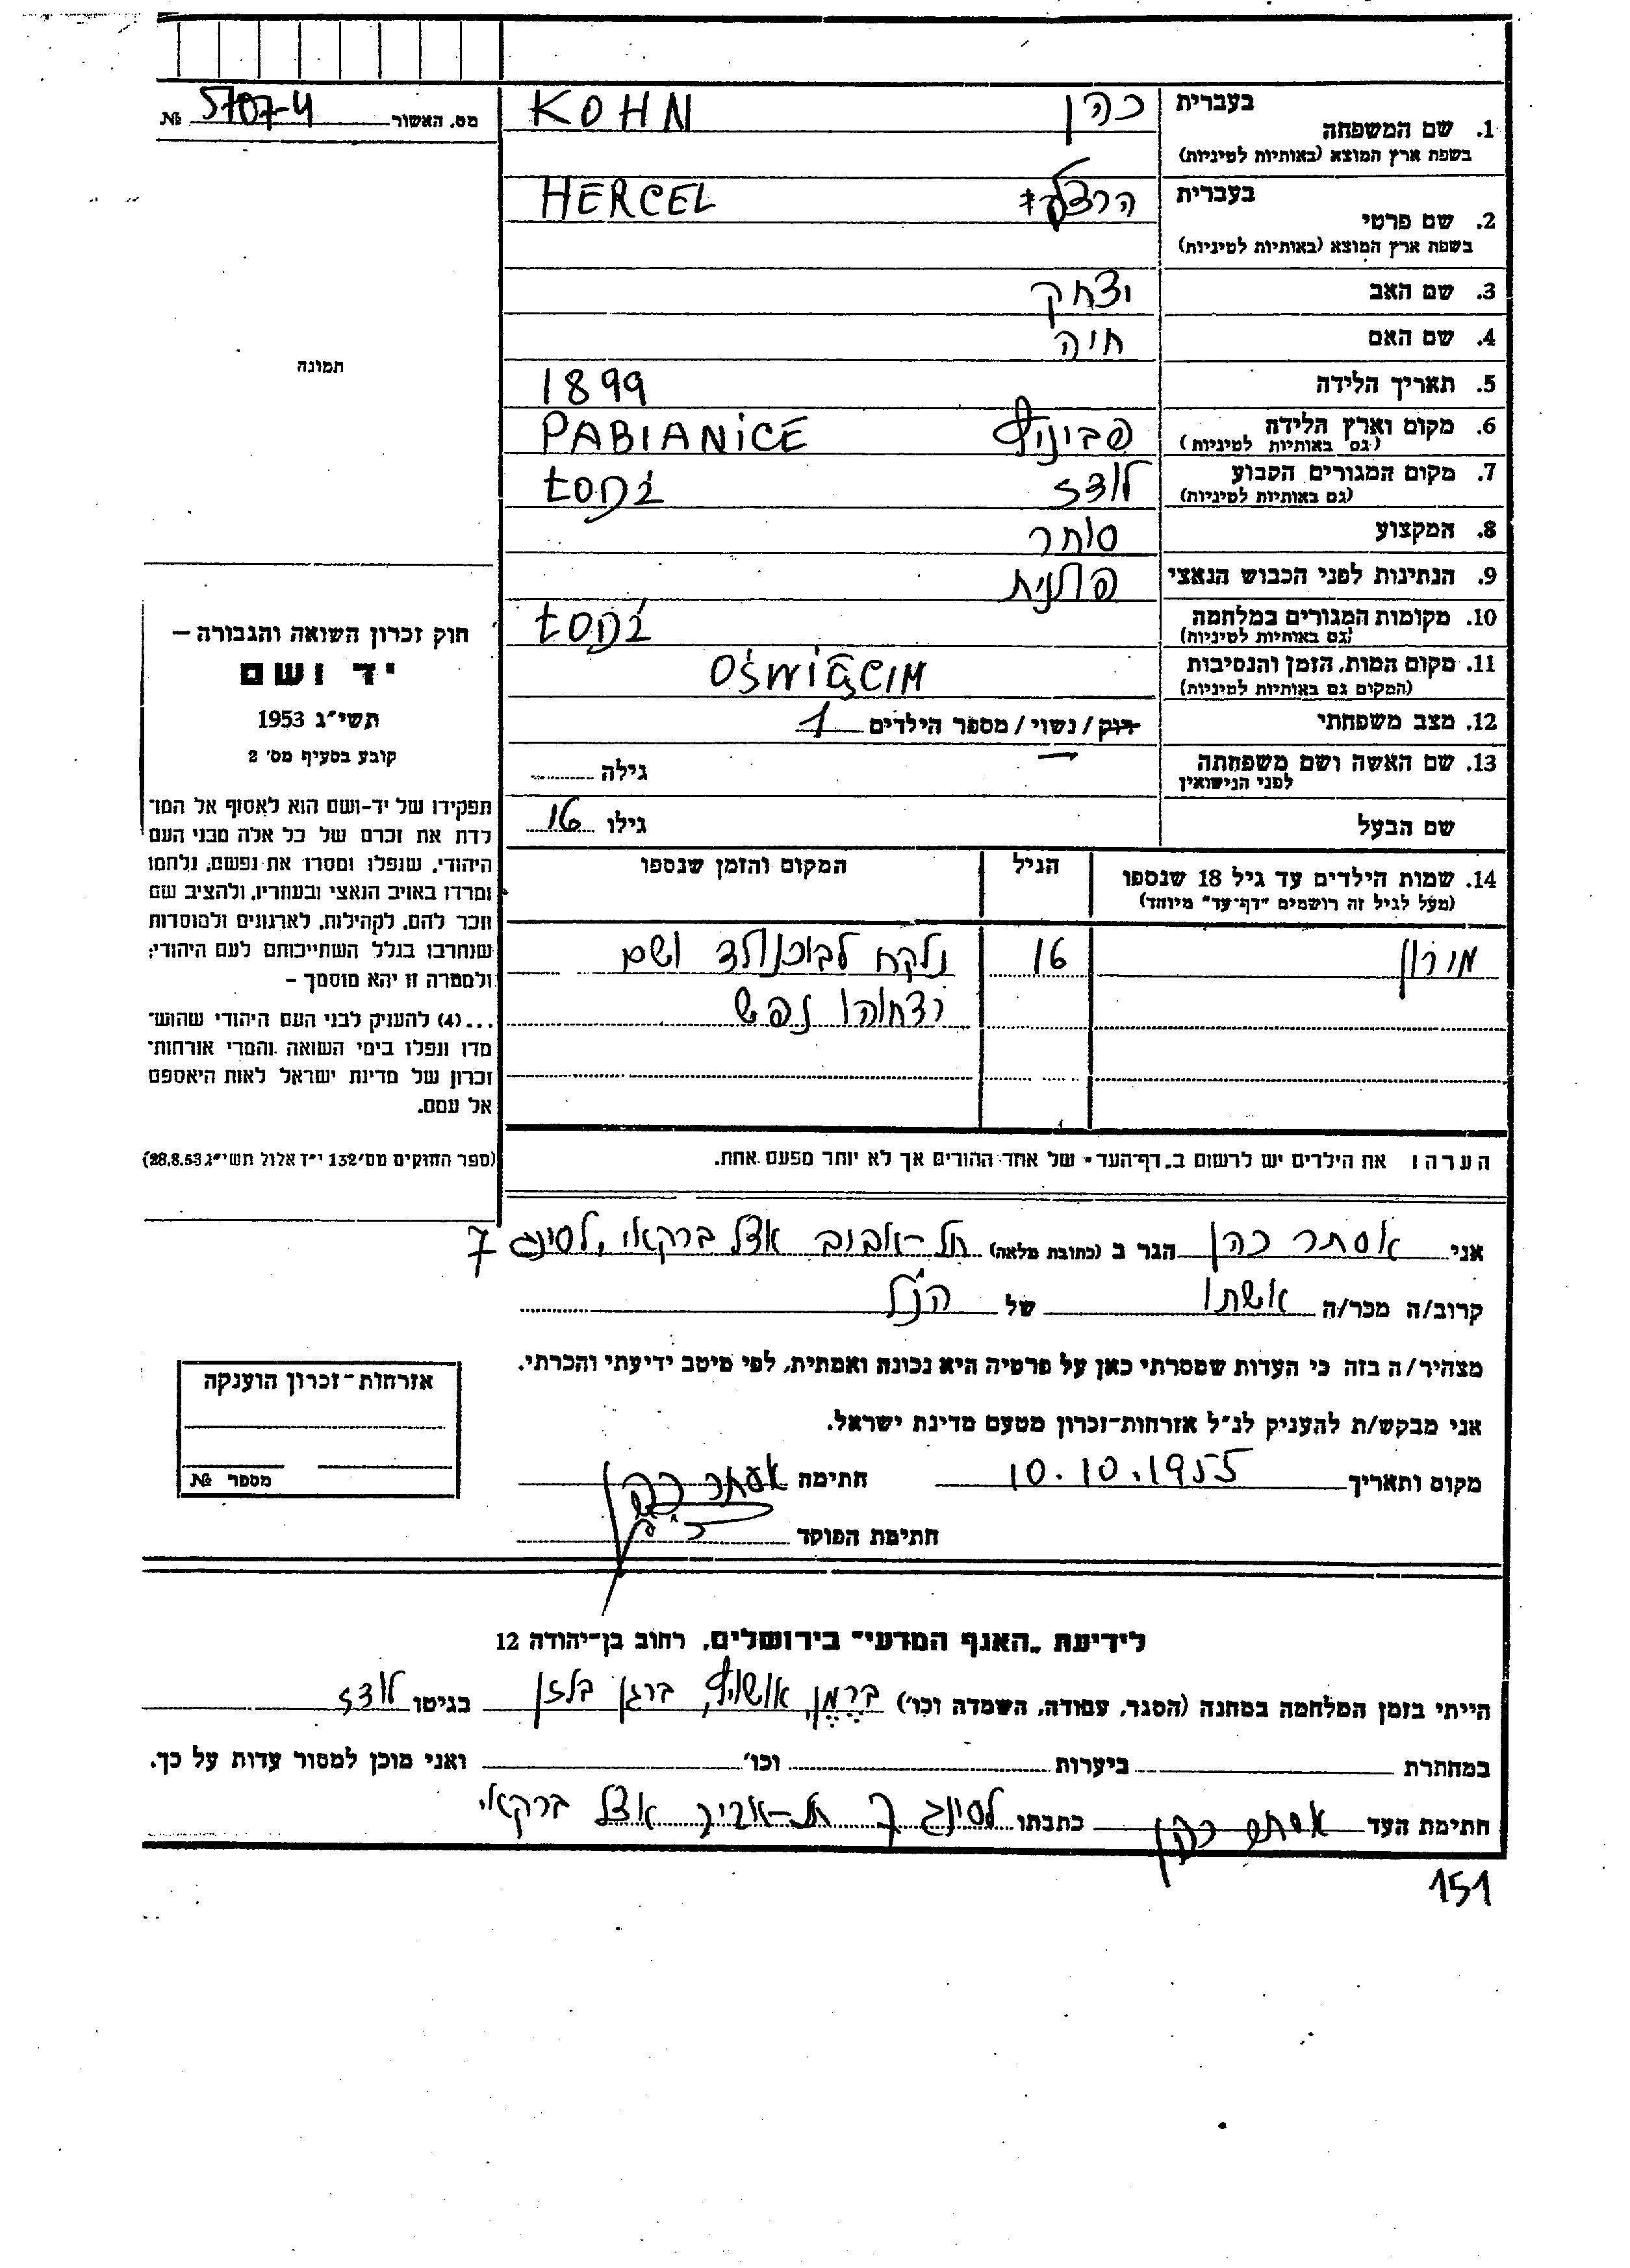 מס. האשור 5707-4 №
בעברית כהן
1. שם המשפחה KOHN
בשפת ארץ המוצא (באותיות לטיניות)
בעברית
2. שם פרטי HERCEL
בשפת ארץ המוצא (באותיות לטיניות)
3. שם האב יצחק
4. שם האם חיה
5. תאריך הלידה 1899
6. מקום וארץ הלידה פביוניץ PABIANiCE
(גם באותיות לטיניות)
7. מקום המגורים הקבוע לודז ŁODŹ
(גם באותיות לטיניות)
8. המקצוע סוחר
9. הנתינות לפני הכבוש הנאצי פולנית
10. מקומות המגורים במלחמה ŁODŹ
(גם באותיות לטיניות)
11. מקום המות, הזמן והנסיבות OŚWIĘCIM
(המקום גם באותיות לטיניות)
12. מצב משפחתי רוק / נשוי / מספר הילדים 1
13. שם האשה ושם משפחתה גילה
לפני הנישואין
שם הבעל גילו 16
14. שמות הילדים עד גיל 18 שנספו הגיל המקום והזמן שנספו
(מעל לגיל זה רושמים "דף-עד" מיוחד)
מורון 16 נלקח לבוכנולד ושם
רצחוהו נפש
הערה ! את הילדים יש לרשום ב„דף-העד" של אחד ההורים אך לא יותר מפעם אחת.
תמונה
חוק זכרון השואה והגבורה –
יד ושם
תשי"ג 1953
קובע בסעיף מס' 2
תפקידו של יד-ושם הוא לאסוף אל המו־
לדת את זכרם של כל אלה מבני העם
היהודי, שנפלו ומסרו את נפשם, נלחמו
ומרדו באויב הנאצי ובעוזריו, ולהציב שם
וזכר להם, לקהילות, לארגונים ולמוסדות
שנחרבו בגלל השתייכותם לעם היהודי;
ולמטרה זו יהא מוסמך –
...(4) להעניק לבני העם היהודי שהוש־
מדו ונפלו בימי השואה והמרי אזרחות־
זכרון של מדינת ישראל לאות היאספם
אל עמם.
(ספר החוקים מס' 132 י"ז אלול תשי"ג 28.8.53)
אני אסתר כהן הגר ב (כתובת מלאה) תל-אביב אצל ברקאי, לסינג 7
קרוב/ה מכר/ה אשתו של הנ"ל
מצהיר/ה בזה כי העדות שמסרתי כאן על פרטיה היא נכונה ואמתית, לפי מיטב ידיעתי והכרתי.
אני מבקש/ת להעניק לנ"ל אזרחות-זכרון מטעם מדינת ישראל.
מקום ותאריך 10.10.1955 חתימה אסתר כהן
חתימת הפוקד
אזרחות-זכרון הוענקה
מספר №
לידיעת „האגף המדעי" בירושלים, רחוב בן-יהודה 12
הייתי בזמן המלחמה במחנה (הסגר, עבודה, השמדה וכו') ברמן, אושויץ, ברגן בלזן בגיטו לודז
במחתרת ביערות וכו' ואני מוכן למסור עדות על כך.
חתימת העד אסתר כהן כתבתו לסינג 7 תל-אביב אצל ברקאי
151